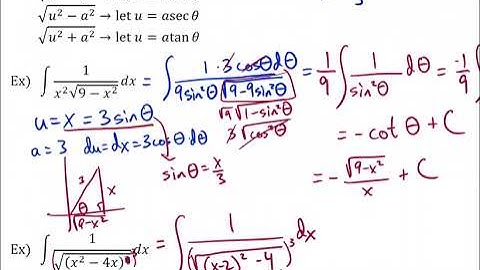 √(u² − a²) → let u = a sec θ
√(u² + a²) → let u = a tan θ
Ex) ∫ 1/(x²√(9 − x²)) dx = ∫ (1 · 3cosθ dθ)/(9sin²θ √(9−9sin²θ)) = 1/9 ∫ 1/(sin²θ) dθ = -1/9
√9 √(1−sin²θ)
3√cos²θ
u = x = 3 sin θ
a = 3 du = dx = 3 cos θ dθ
= −cot θ + C
sin θ = x/3
3 x θ √(9−x²)
= − √(9−x²)/x + C
Ex) ∫ 1/(√(x² − 4x))³ dx = ∫ 1/(√((x−2)² − 4))³ dx